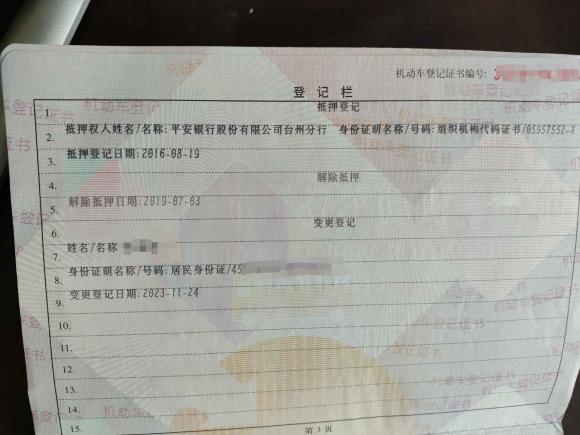 机动车登记证书编号:
登 记 栏
1. 抵押登记
2. 抵押权人姓名/名称:平安银行股份有限公司台州分行 身份证明名称/号码:组织机构代码证书/05957552-X
3. 抵押登记日期:2016-08-19
4. 解除抵押
5. 解除抵押日期:2019-07-03
6. 变更登记
7. 姓名/名称
8. 身份证明名称/号码:居民身份证/45
9. 变更登记日期:2023-11-24
10.
11.
12.
13.
14.
15.
第 3 页